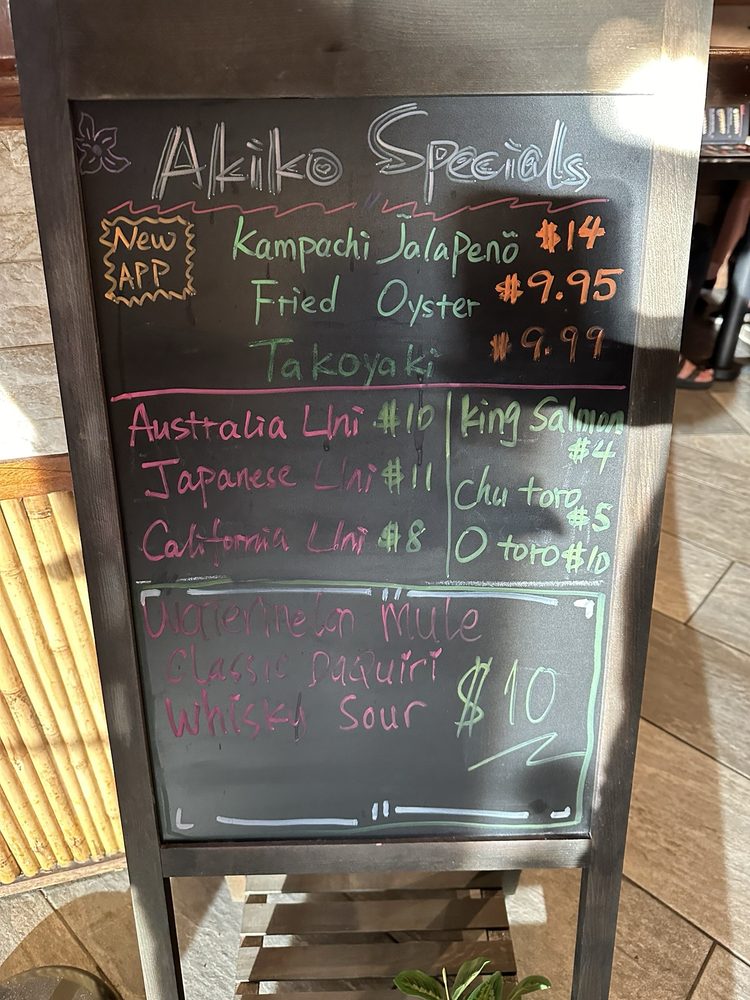 Akiko Specials
New APP
Kampachi Jalapeño $14
Fried Oyster $9.95
Takoyaki $9.99
Australia Uni $10
Japanese Uni $11
California Uni $8
King Salmon $4
Chu toro $5
O toro $10
Watermelon Mule
Classic Daquiri
Whisky Sour
$10